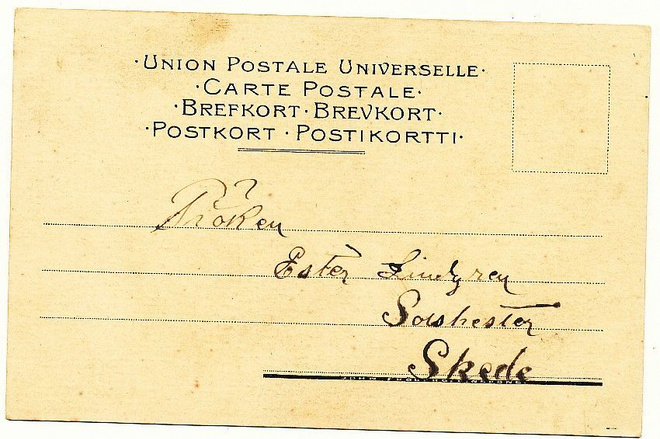 ·UNION POSTALE UNIVERSELLE·
·CARTE POSTALE·
·BREFKORT·BREVKORT·
·POSTKORT·POSTIKORTTI·
Fröken
Ester Lindgren
Skede